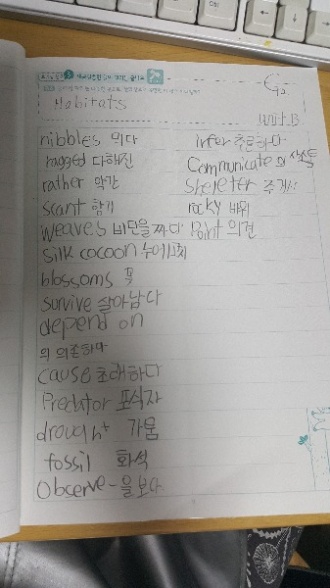 Habitats
unit.B
nibbles 뜯다 infer 추론하다
ragged 다해진 Communicate 의사소통
rather 약간 Sheleter 주거지
scant 향기 rocky 바위
weaves 비단을 짜다 Point 의견
silk cocoon 누에고치
blossoms 꽃
survive 살아남다
depend on
의 의존하다
cause 초래하다
Predator 포식자
drought 가뭄
fossil 화석
Observe-을 보다